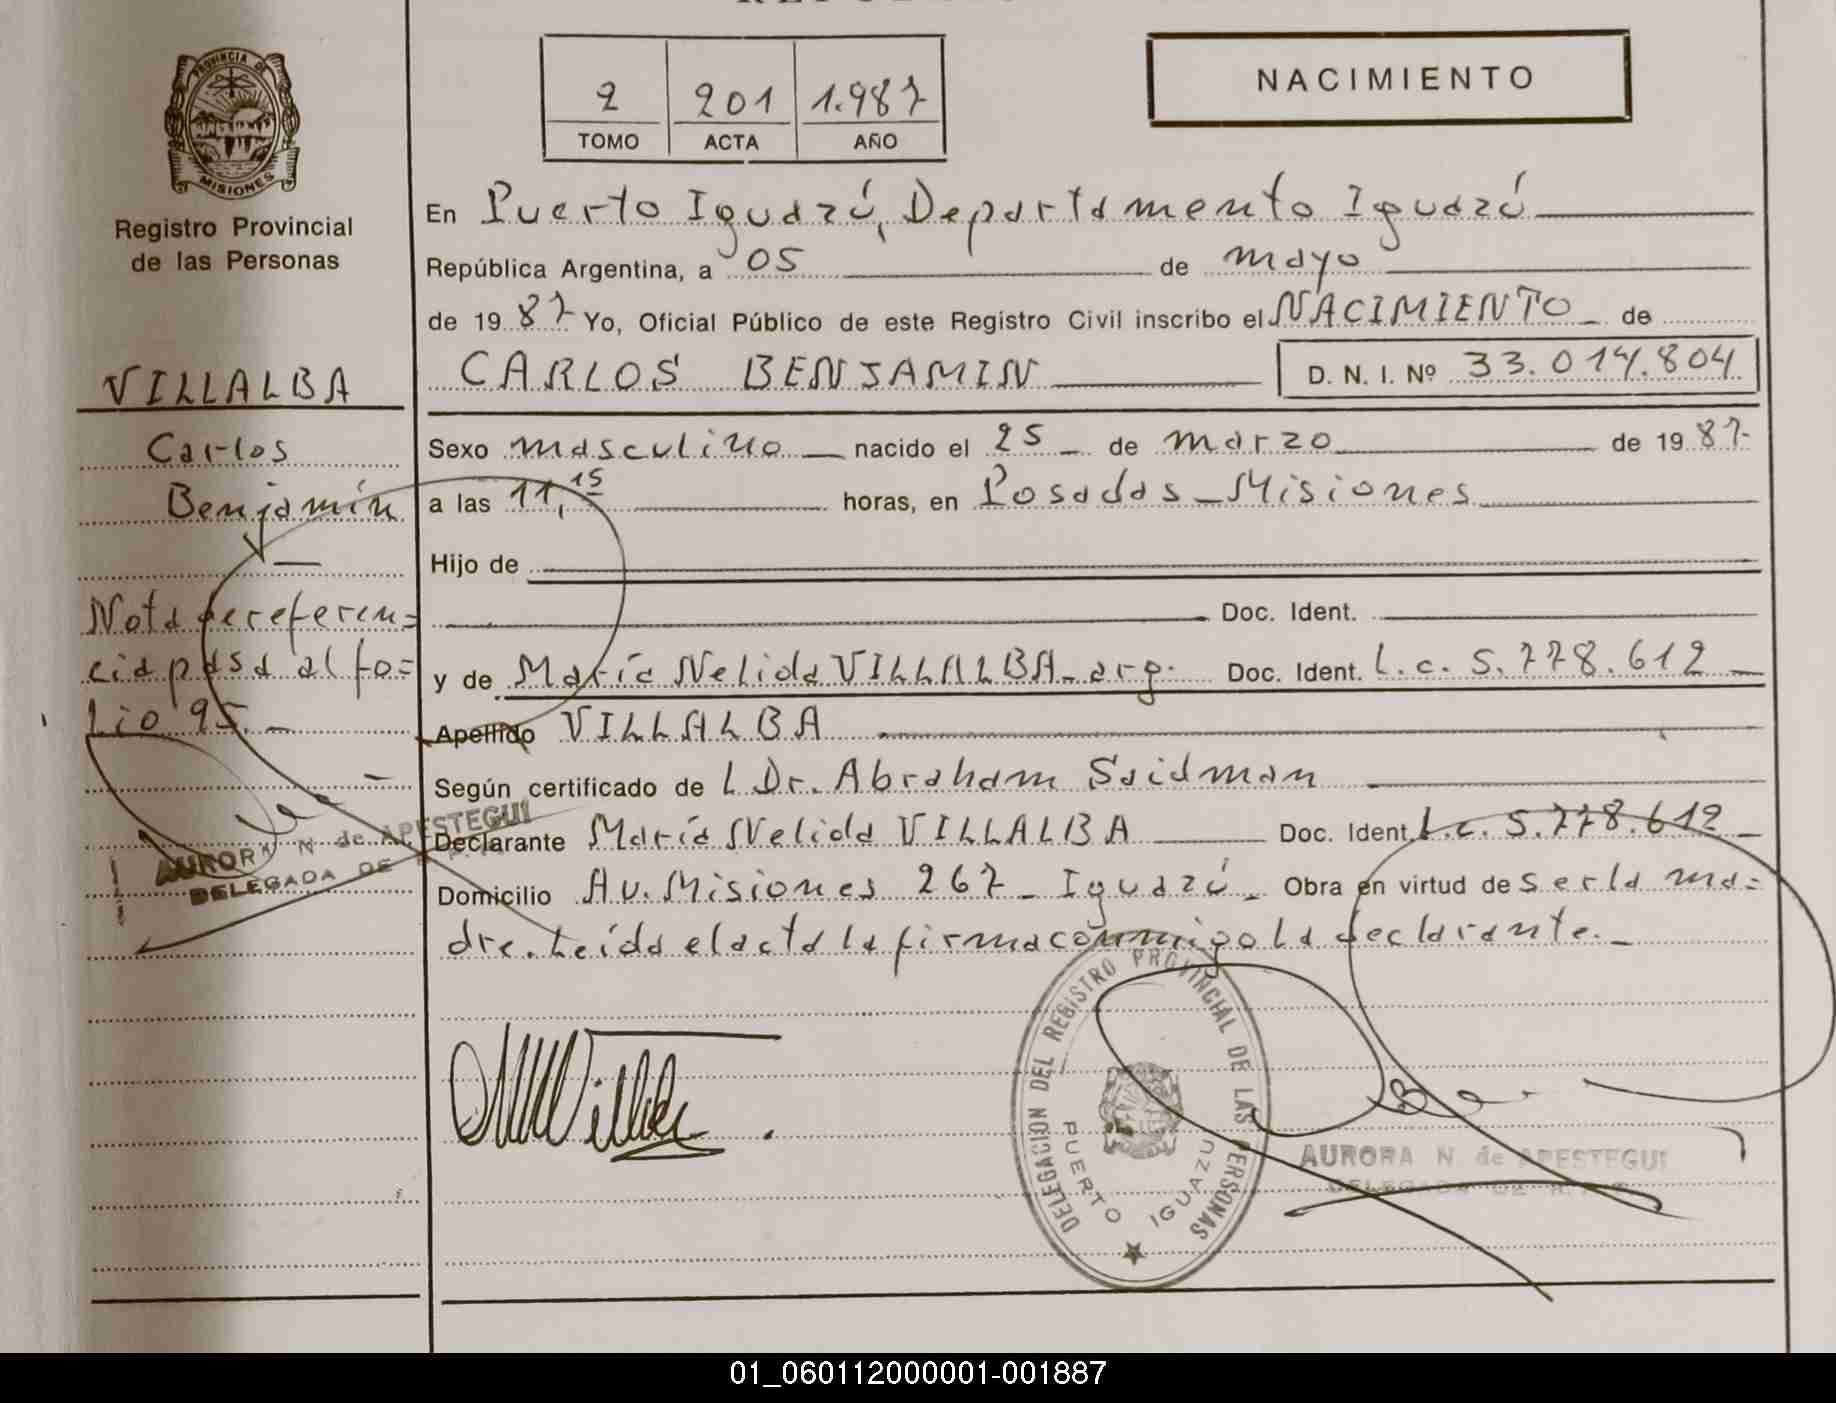 PROVINCIA DE
MISIONES
Registro Provincial
de las Personas
2 201 1.987
TOMO ACTA AÑO
NACIMIENTO
En Puerto Iguazú, Departamento Iguazú
República Argentina, a 05 de mayo
de 19 87 Yo, Oficial Público de este Registro Civil inscribo el NACIMIENTO de
CARLOS BENJAMIN D. N. I. Nº 33.014.804
VILLALBA
Carlos
Benjamín
Nota de referen=
cia pasa al fo=
lio 95.
AURORA N de APESTEGUI
DELEGADA DE
Sexo masculino nacido el 25 de marzo de 19 87
a las 11,15 horas, en Posadas - Misiones
Hijo de
Doc. Ident.
y de María Nelida VILLALBA - arg. Doc. Ident. L.c. 5.778.612
Apellido VILLALBA
Según certificado de L Dr. Abraham Saidman
Declarante María Nelida VILLALBA Doc. Ident. L.c. 5.778.612
Domicilio Av. Misiones 267 - Iguazú Obra en virtud de ser la ma=
dre. Leída el acta la firma conmigo la declarante.
DELEGACION DEL REGISTRO PROVINCIAL DE LAS PERSONAS
PUERTO IGUAZU
AURORA N. de APESTEGUI
DELEGADA DE R.P.P.
01_060112000001-001887